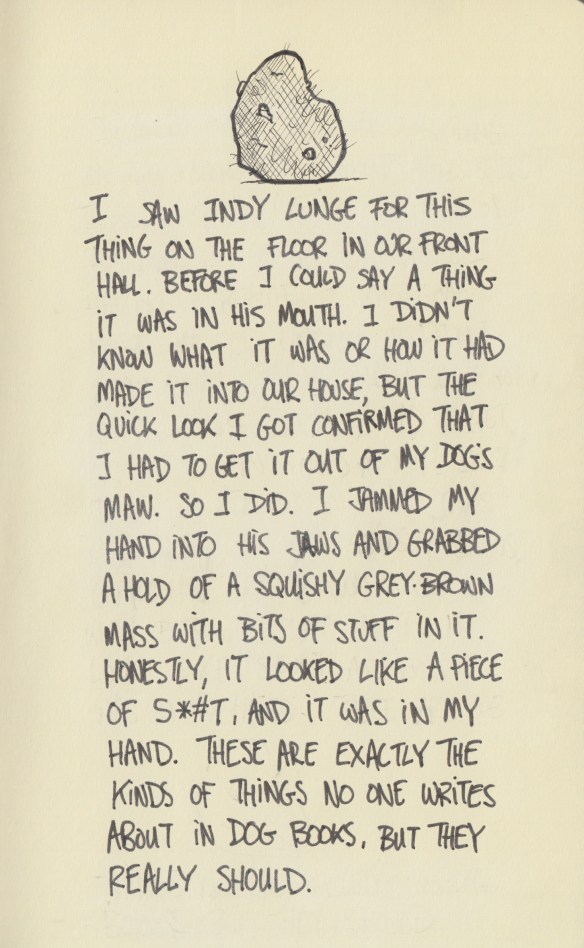 I SAW INDY LUNGE FOR THIS
THING ON THE FLOOR IN OUR FRONT
HALL. BEFORE I COULD SAY A THING
IT WAS IN HIS MOUTH. I DIDN'T
KNOW WHAT IT WAS OR HOW IT HAD
MADE IT INTO OUR HOUSE, BUT THE
QUICK LOOK I GOT CONFIRMED THAT
I HAD TO GET IT OUT OF MY DOG'S
MAW. SO I DID. I JAMMED MY
HAND INTO HIS JAWS AND GRABBED
A HOLD OF A SQUISHY GREY-BROWN
MASS WITH BITS OF STUFF IN IT.
HONESTLY, IT LOOKED LIKE A PIECE
OF S*#T, AND IT WAS IN MY
HAND. THESE ARE EXACTLY THE
KINDS OF THINGS NO ONE WRITES
ABOUT IN DOG BOOKS, BUT THEY
REALLY SHOULD.